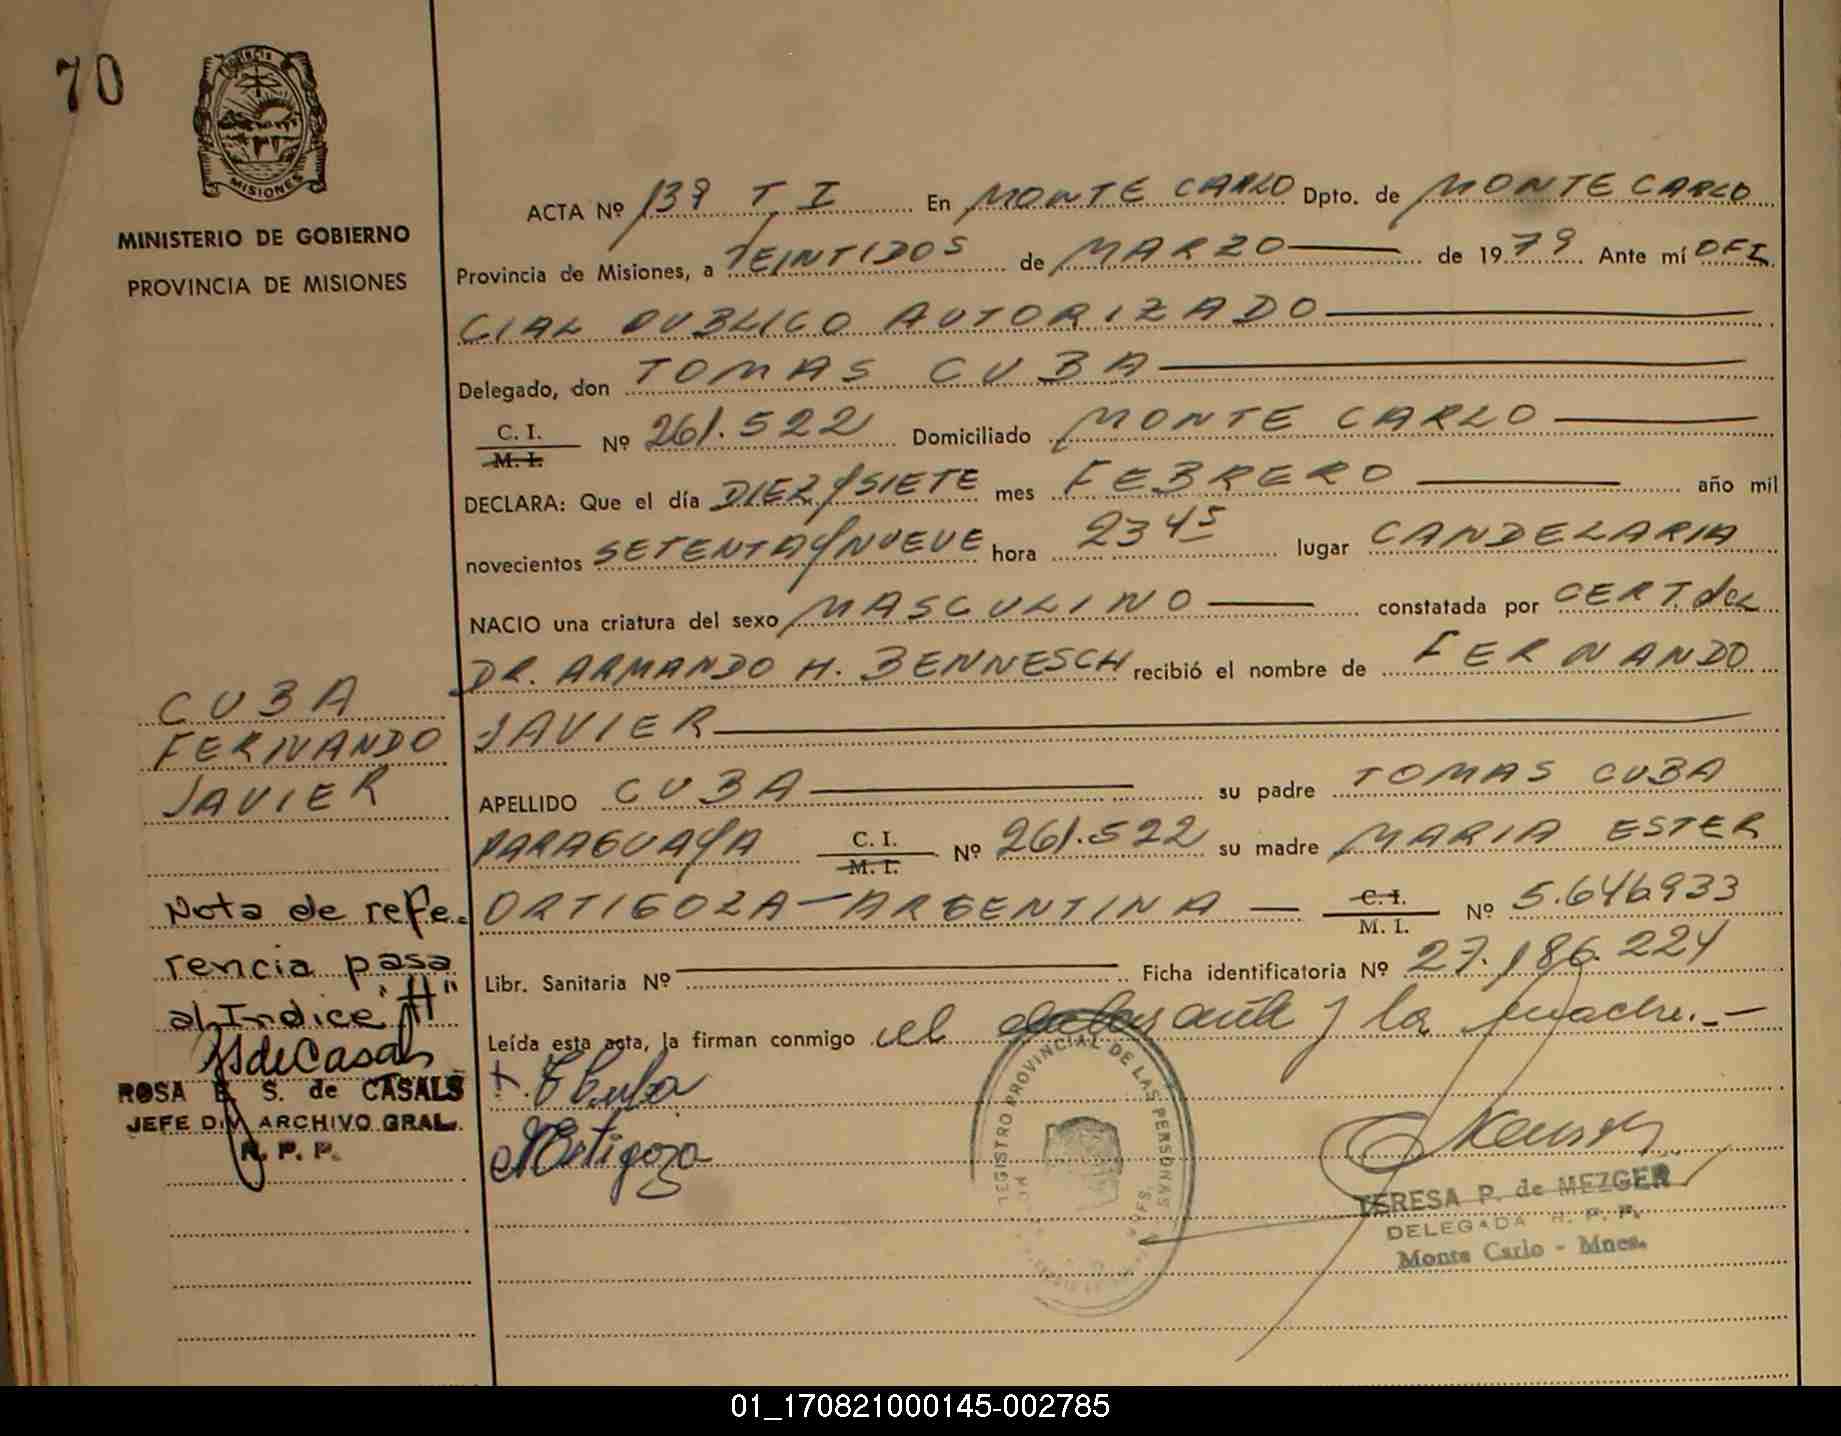 70
PROVINCIA
MISIONES
MINISTERIO DE GOBIERNO
PROVINCIA DE MISIONES
ACTA Nº 139 T I En MONTE CARLO Dpto. de MONTE CARLO
Provincia de Misiones, a VEINTIDOS de MARZO de 1979 Ante mí OFI
CIAL PUBLICO AUTORIZADO
Delegado, don TOMAS CUBA
C. I.
M. I. Nº 261.522 Domiciliado MONTE CARLO
DECLARA: Que el día DIEZ Y SIETE mes FEBRERO año mil
novecientos SETENTA Y NUEVE hora 23 45 lugar CANDELARIA
NACIO una criatura del sexo MASCULINO constatada por CERT. del
DR. ARMANDO H. BENNESCH recibió el nombre de FERNANDO
JAVIER
APELLIDO CUBA su padre TOMAS CUBA
PARAGUAYA C. I. M. I. Nº 261.522 su madre MARIA ESTER
ORTIGOZA - ARGENTINA - C. I. M. I. Nº 5.646.933
Libr. Sanitaria Nº Ficha identificatoria Nº 27.186.224
Leída esta acta, la firman conmigo el declarante y la madre. -
T Cuba
MEOrtigoza
REGISTRO PROVINCIAL DE LAS PERSONAS
TERESA P. de MEZGER
DELEGADA R. P. P.
Monte Carlo - Mnes.
CUBA
FERNANDO
JAVIER
Nota de refe-
rencia pasa
al Indice "H"
RSdeCasals
ROSA E. S. de CASALS
JEFE DIV ARCHIVO GRAL.
R. P. P.
01_170821000145-002785